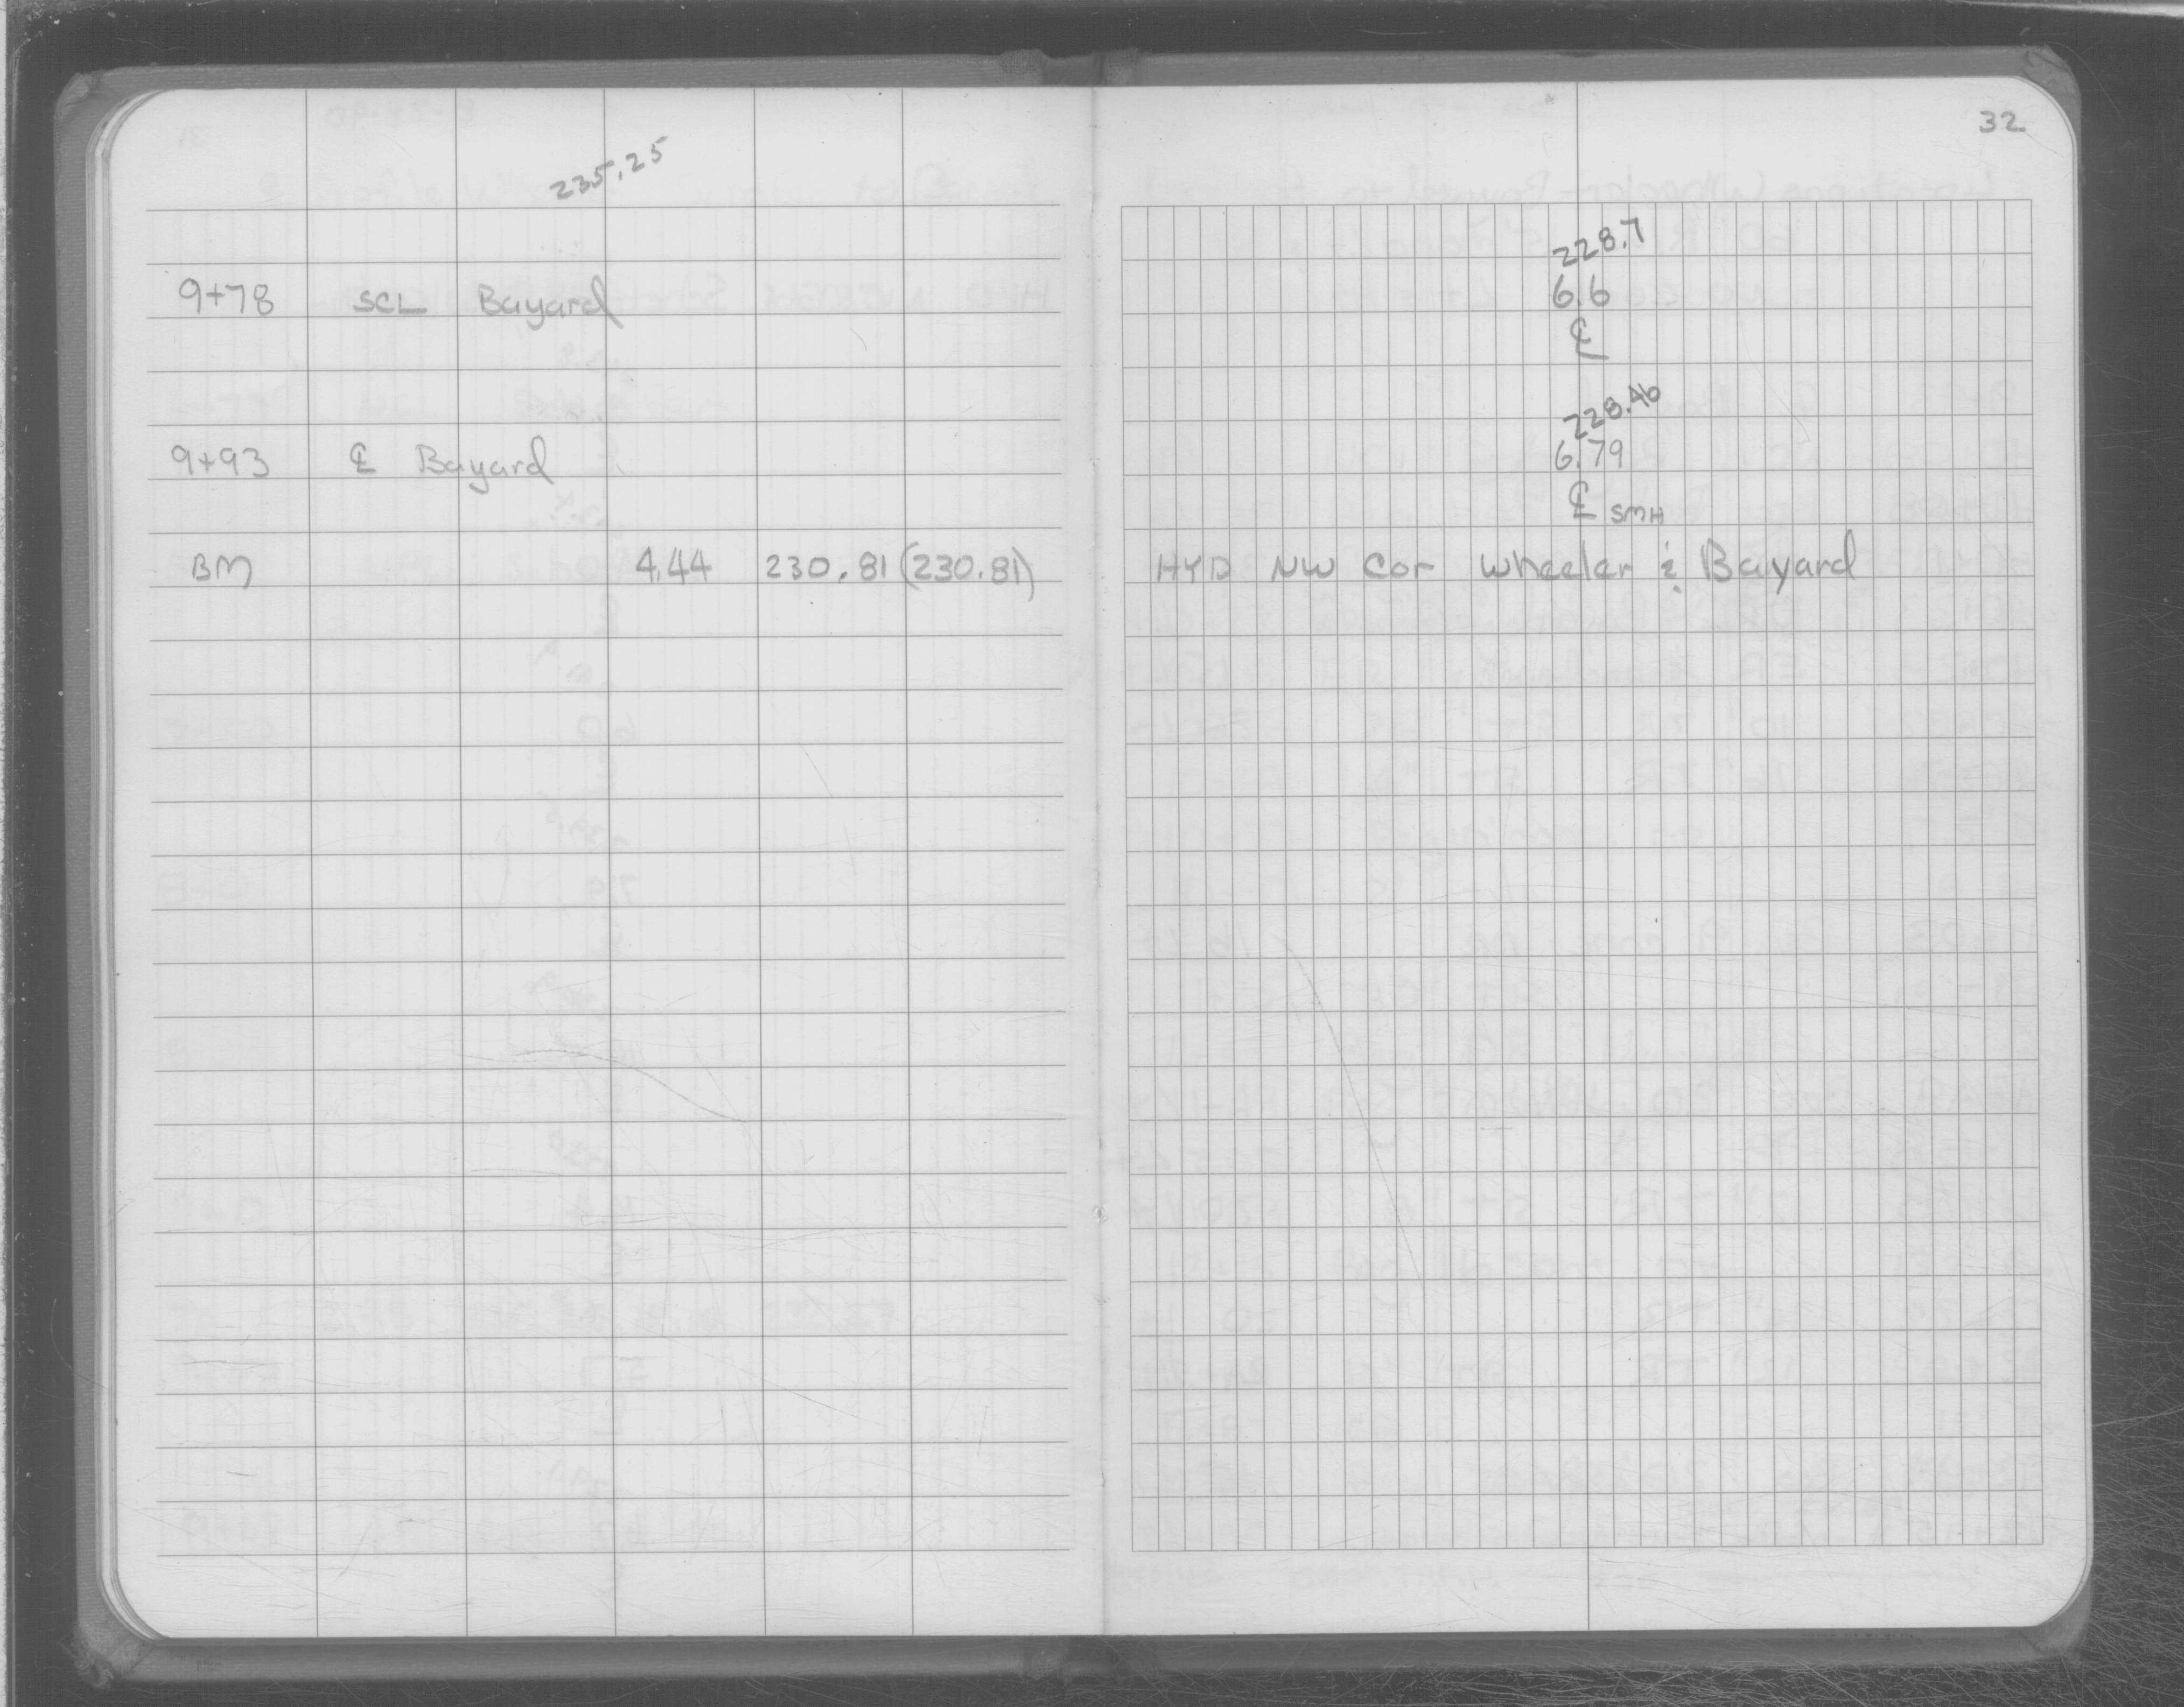 32
235.25
228.7
9+78 SCL Bayard 6.6
℄
228.46
9+93 ℄ Bayard 6.79
℄ SMH
BM 4.44 230.81 (230.81) HYD NW Cor Wheeler & Bayard